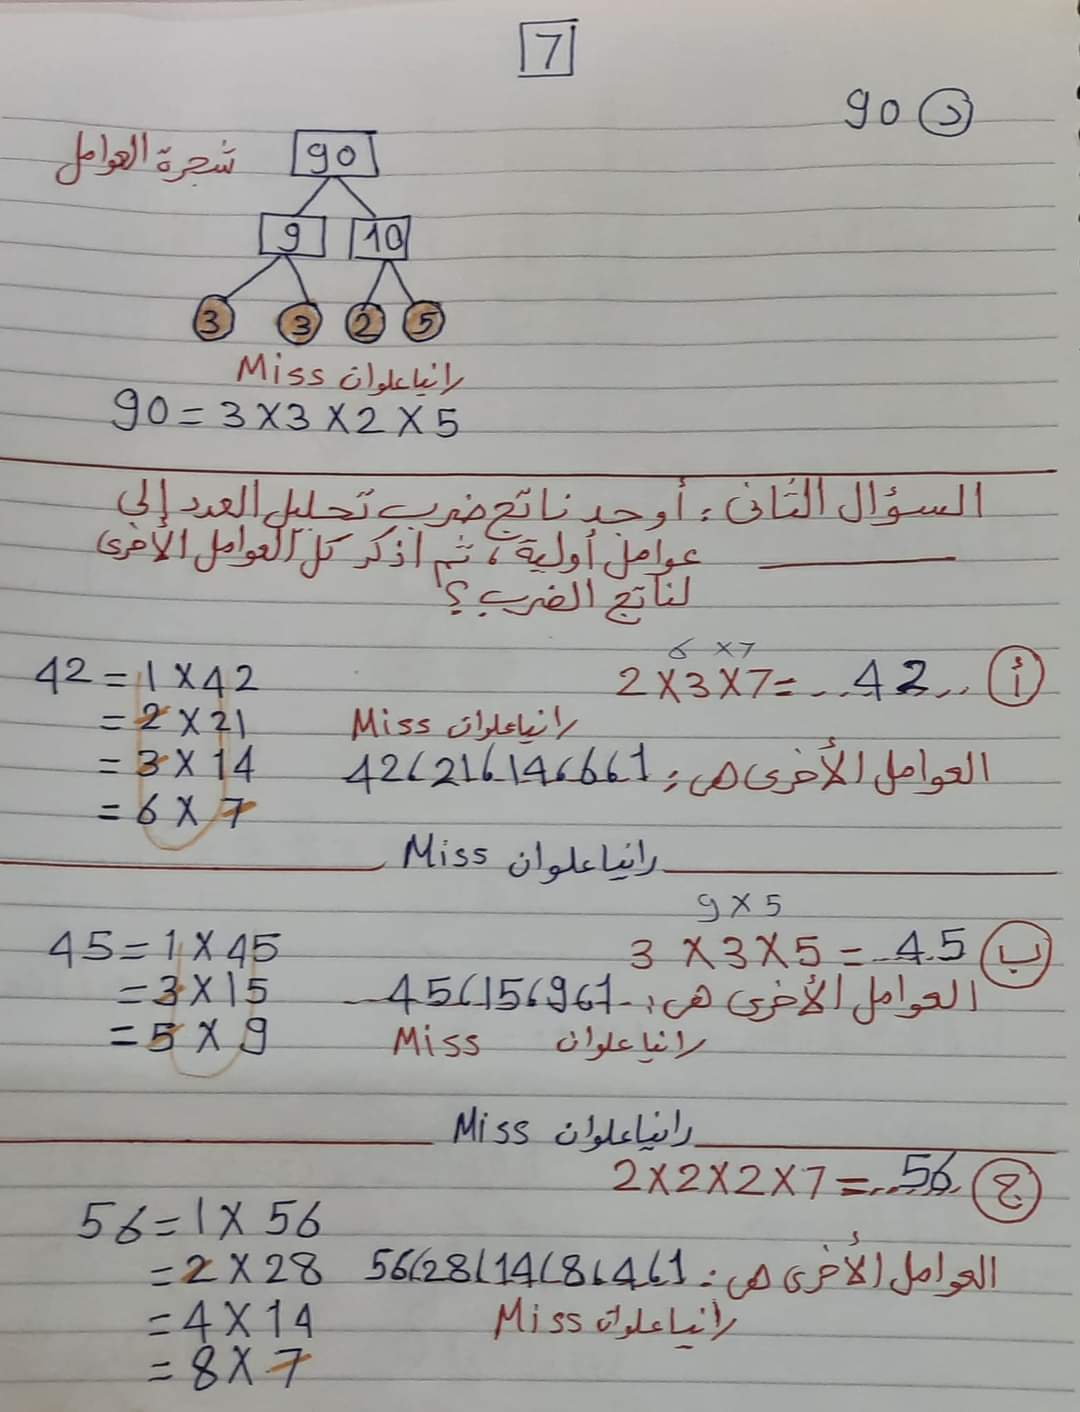 7
د 90
شجرة العوامل
90
9 10
3 3 2 5
Miss رانيا علوان
90 = 3 X 3 X 2 X 5
السؤال الثانى : أوجد ناتج ضرب تحليل العدد إلى
عوامل أولية ، ثم اذكر كل العوامل الأخرى
لناتج الضرب ؟
6 X 7
أ 2 X 3 X 7 = ..42..
42 = 1 X 42
= 2 X 21
= 3 X 14
= 6 X 7
Miss رانيا علوان
العوامل الأخرى هى : 1 ، 6 ، 14 ، 21 ، 42
Miss رانيا علوان
9 X 5
ب 3 X 3 X 5 = ..45
45 = 1 X 45
= 3 X 15
= 5 X 9
العوامل الأخرى هى : 1 ، 9 ، 15 ، 45
Miss رانيا علوان
Miss رانيا علوان
ج 2 X 2 X 2 X 7 = ..56..
56 = 1 X 56
= 2 X 28
= 4 X 14
= 8 X 7
العوامل الأخرى هى : 1 ، 4 ، 8 ، 14 ، 28 ، 56
Miss رانيا علوان